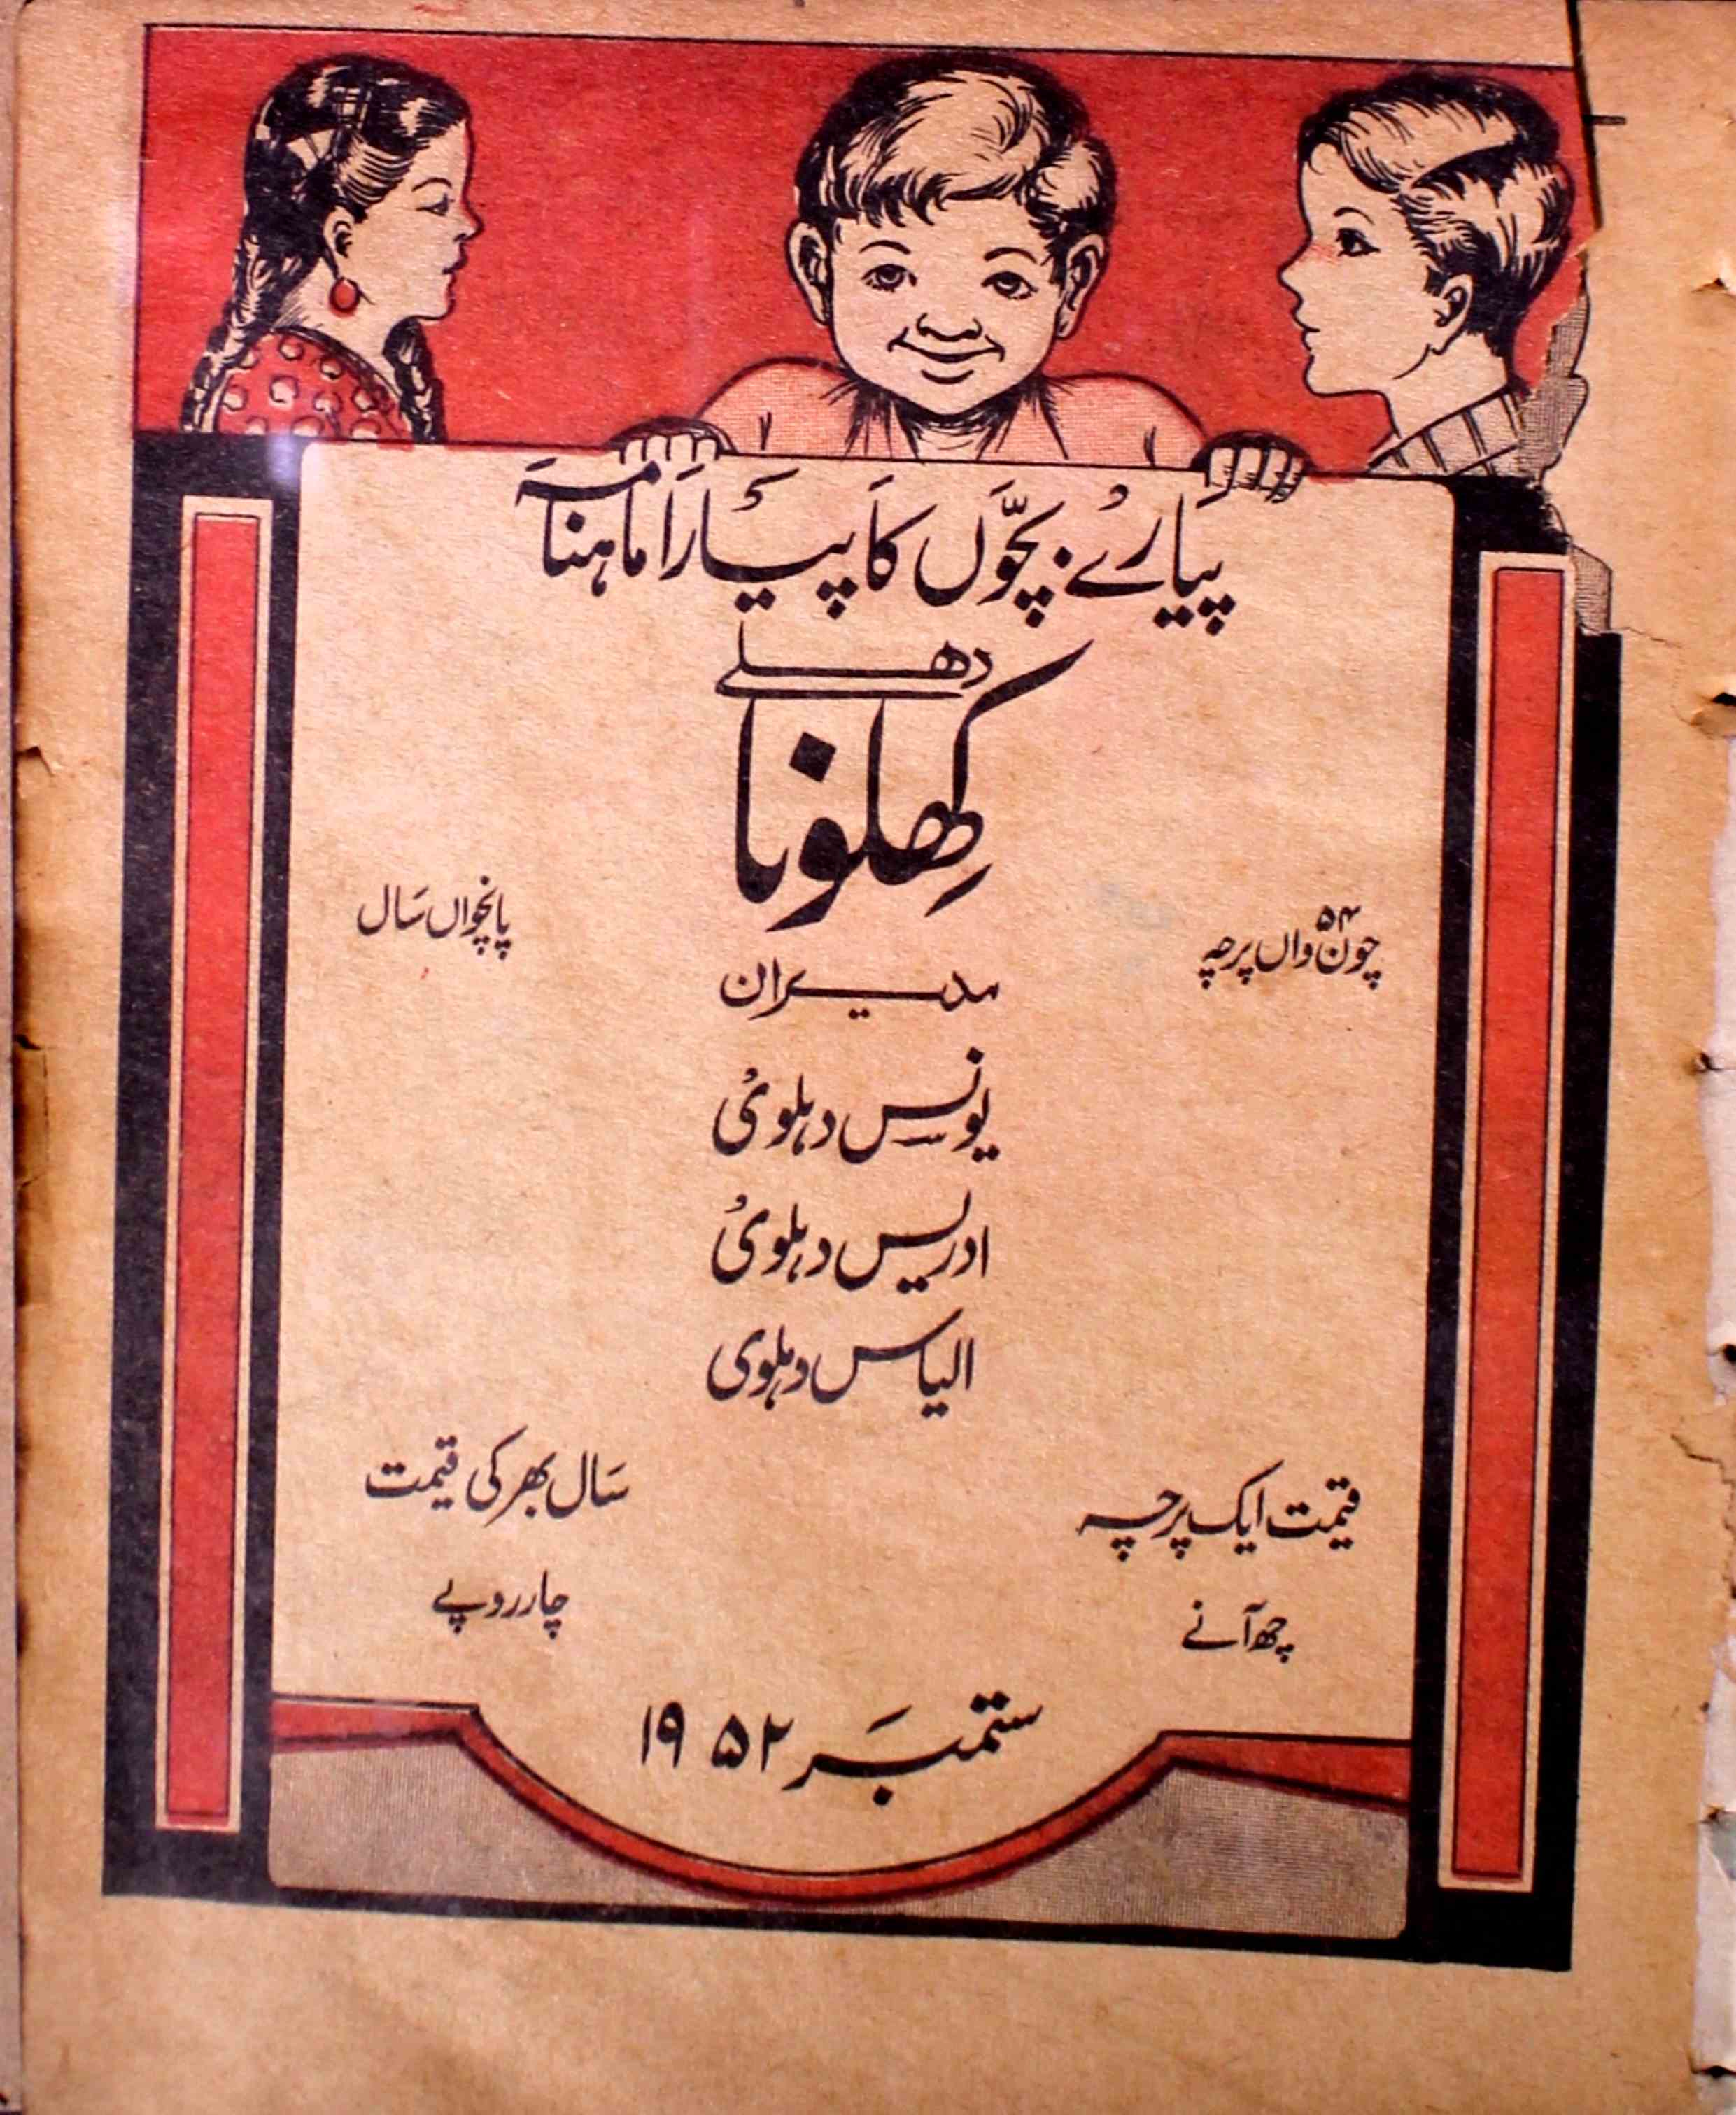 پیارے بچّوں کا پیارا ماہنامہ
دھلی
کھلونا
۵۴
چون واں پرچہ
پانچواں سال
مدیران
یونس دہلوی
ادریس دہلوی
الیاس دہلوی
قیمت ایک پرچہ
چھ آنے
سال بھر کی قیمت
چار روپے
ستمبر ۱۹۵۲